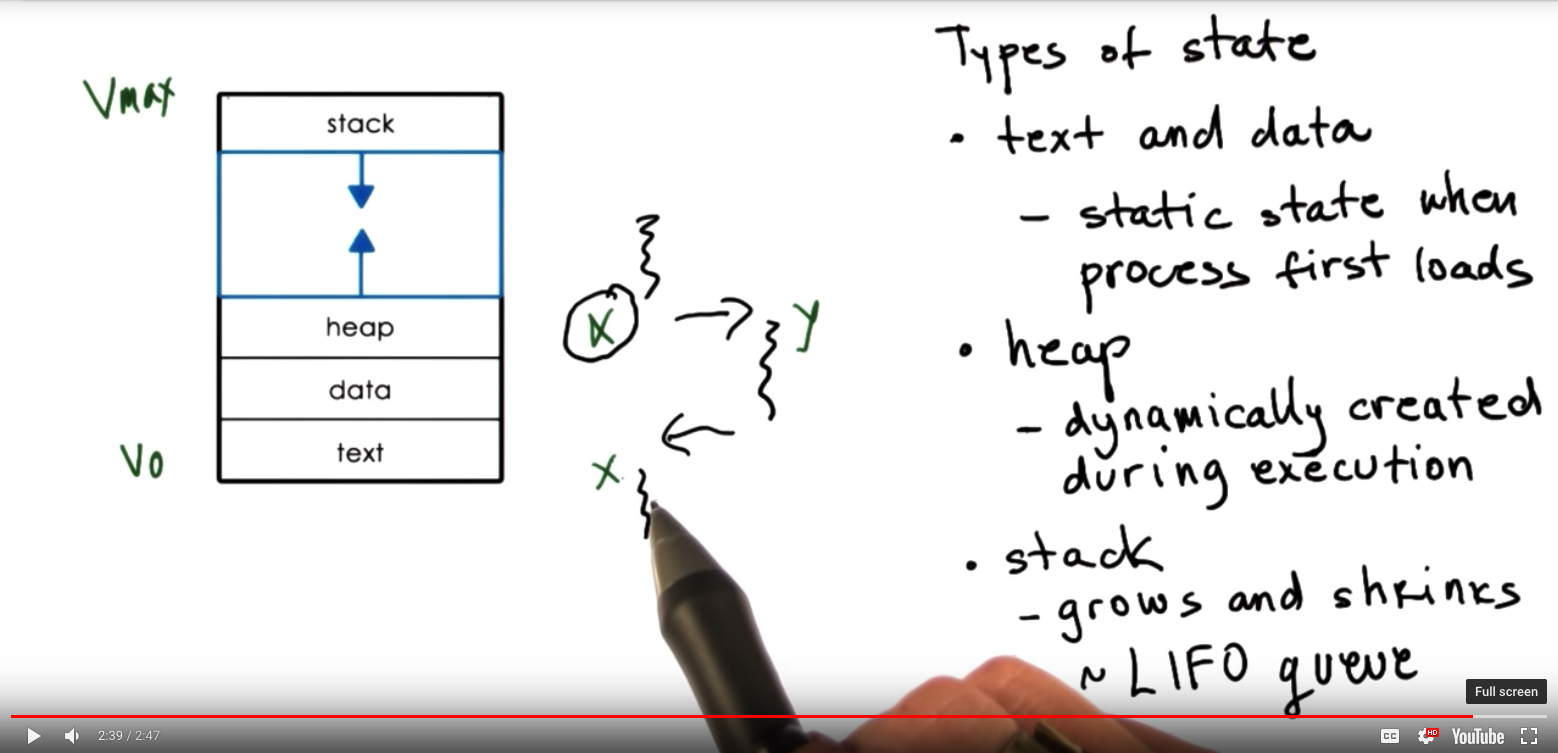 Vmax
stack
heap
data
text
V0
X
y
X
Types of state
• text and data
– static state when
process first loads
• heap
– dynamically created
during execution
• stack
– grows and shrinks
~ LIFO queue
Full screen
2:39 / 2:47
CC
HD
YouTube